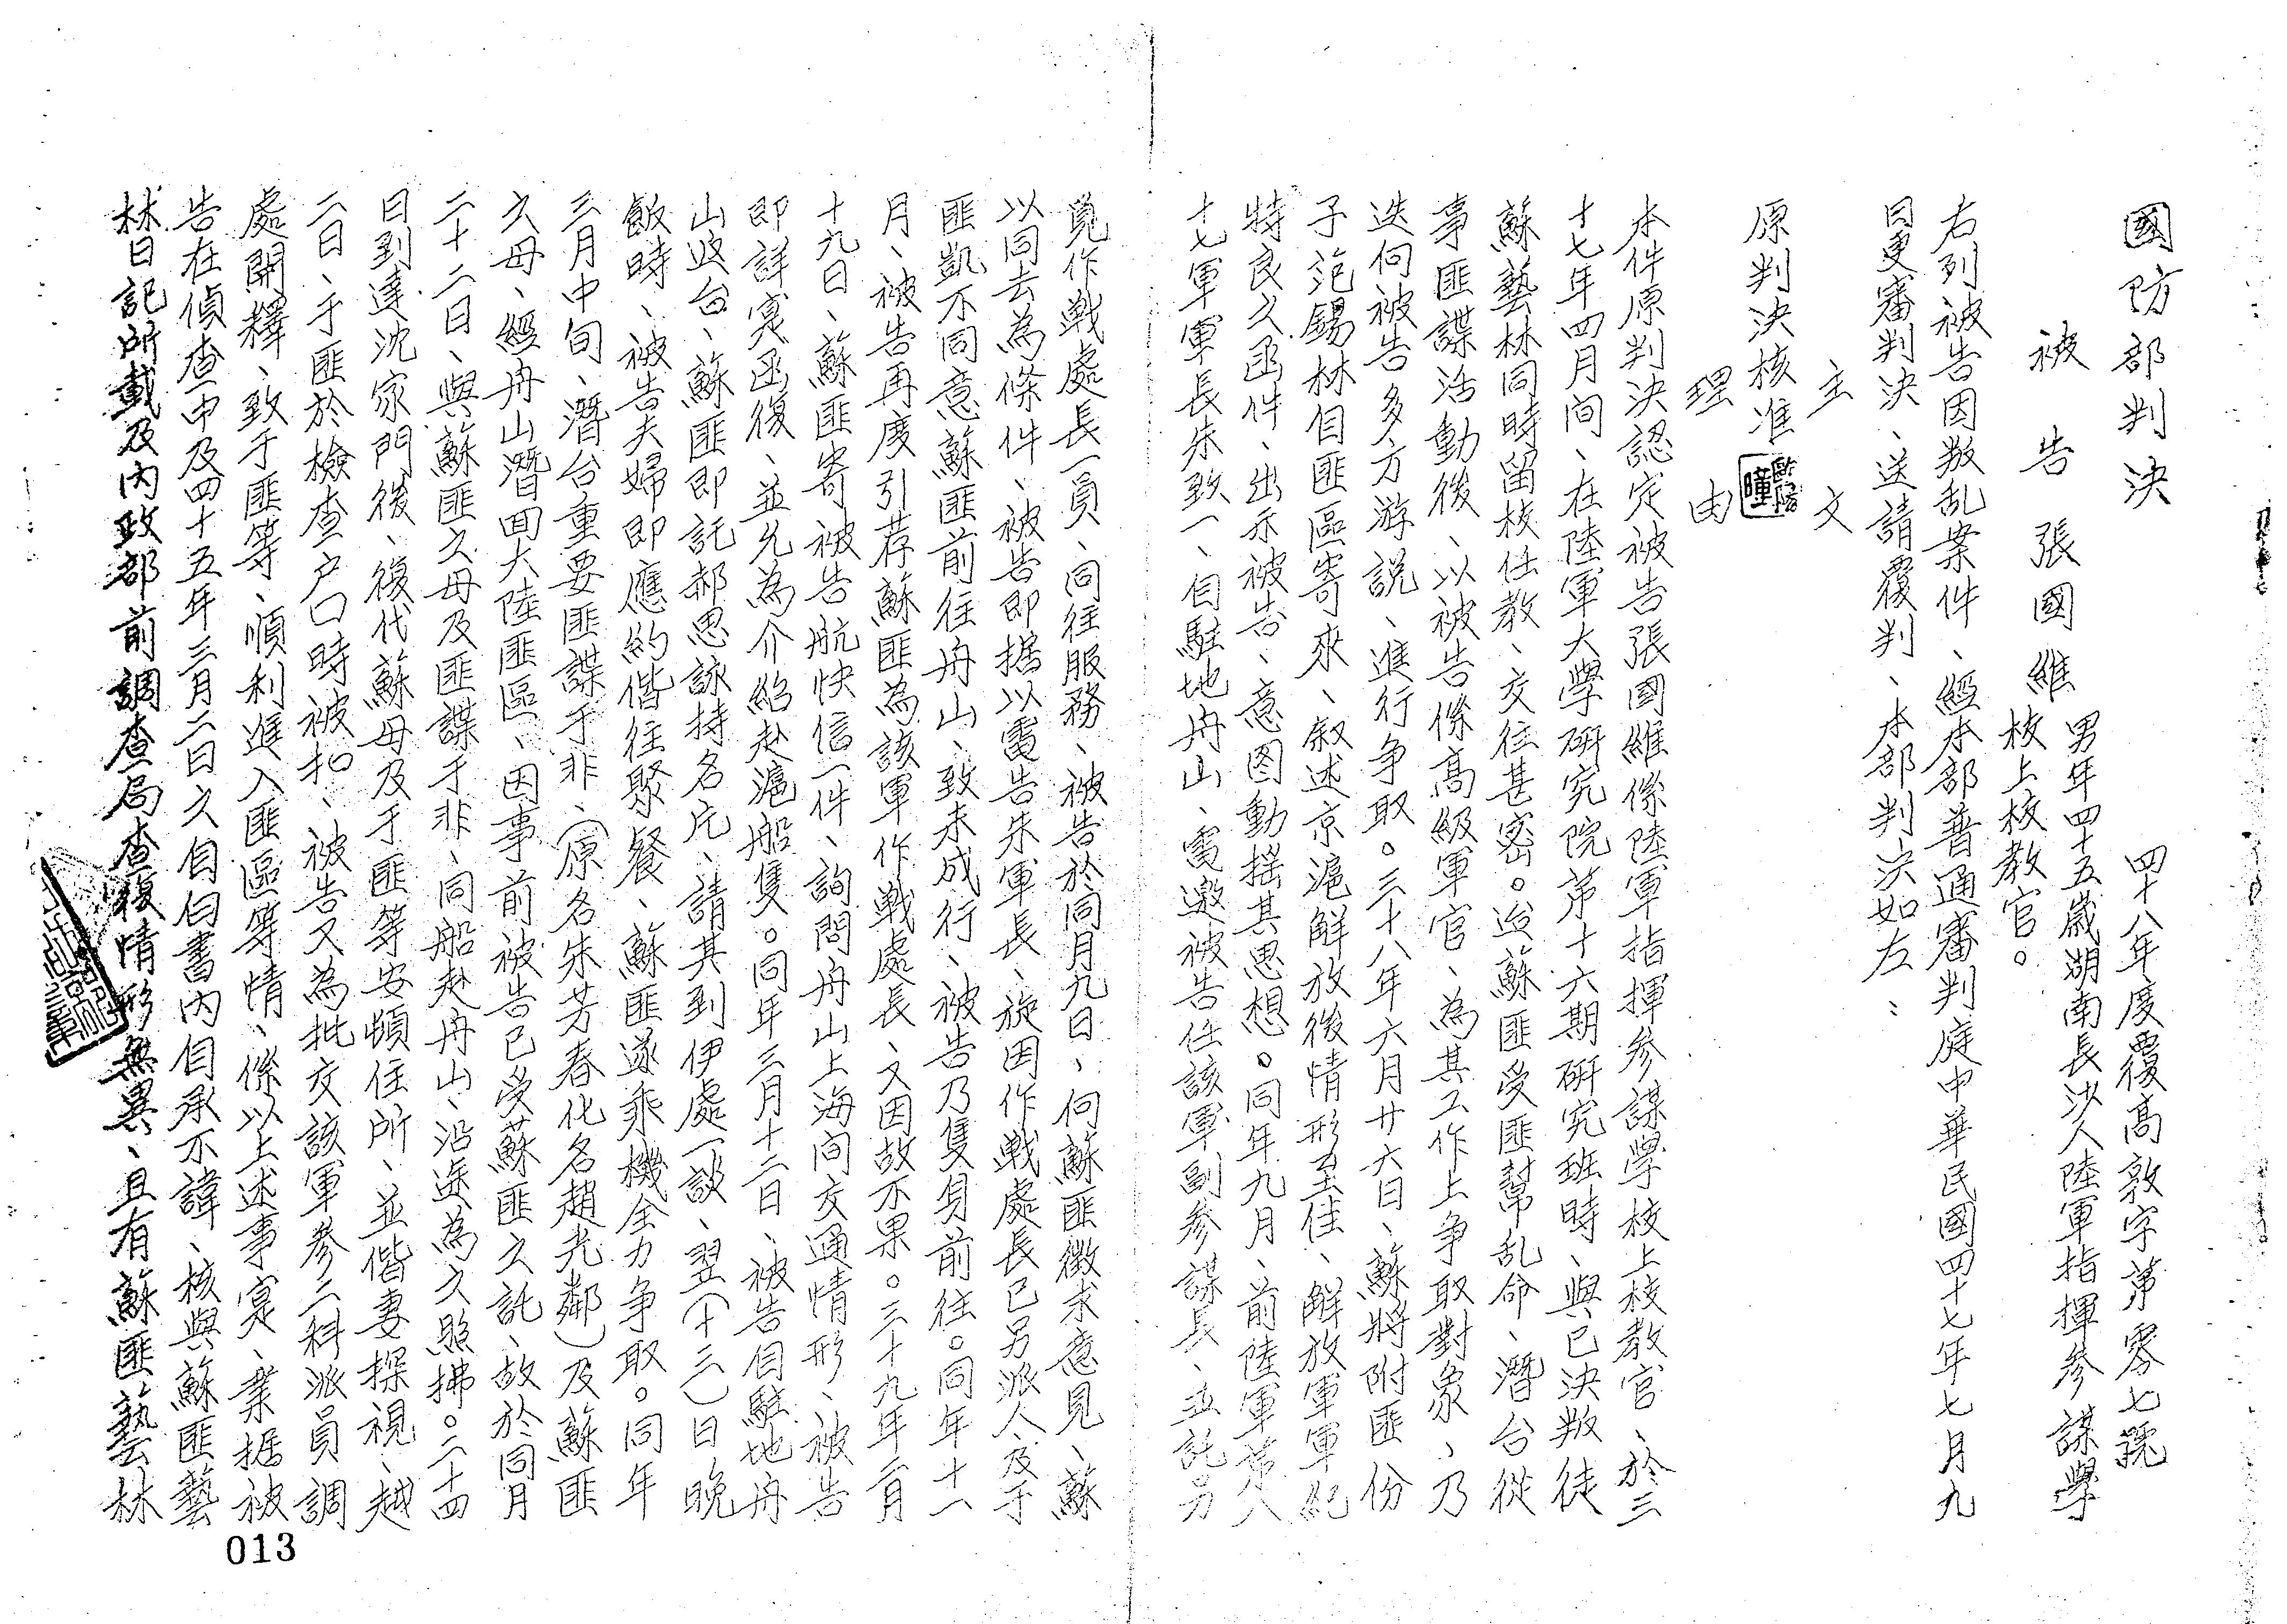 國防部判決
四十八年度覆高敦字第零七號
被告 張國維 男年四十五歲湖南長沙人陸軍指揮參謀學
校上校教官。
右列被告因叛乱案件、經本部普通審判庭中華民國四十七年七月九
日更審判決、送請覆判、本部判決如左：
主文
原判決核准
理由
本件原判決認定被告張國維係陸軍指揮參謀學校上校教官、於三
十七年四月间、在陸軍大學研究院第十六期研究班時、與已決叛徒
蘇藝林同時留校任教、交往甚密。迨蘇匪受匪幫乱命、潛台從
事匪諜活動後、以被告係高級軍官、為其工作上争取對象、乃
迭向被告多方游説、進行争取。三十八年六月廿六日、蘇將附匪份
子范錫林自匪區寄來、叙述京滬解放後情形至佳、解放軍軍紀
特良之函件、出示被告、意图動摇其思想。同年九月、前陸軍第八
十七軍軍長朱致一、自駐地舟山、電邀被告任該軍副參謀長、並託另
覓作戰處長一員、同往服務、被告於同月九日、向蘇匪徵求意見、蘇
以同去為條件、被告即据以電告朱軍長、旋因作戰處長已另派人及于
匪凱不同意蘇匪前往舟山、致未成行、被告乃隻身前往。同年十一
月、被告再度引荐蘇匪為該軍作戰處長、又因故不果。三十九年二月
十九日、蘇匪寄被告航快信一件、詢問舟山上海间交通情形、被告
即詳寔函復、並允為介紹赴滬船隻。同年三月十二日、被告自駐地舟
山返台、蘇匪即託郝思詠持名片、請其到伊處一談、翌(十三)日晚
飯時、被告夫婦即應約偕往聚餐、蘇匪遂乘機全力争取。同年
三月中旬、潛台重要匪諜于非、(原名朱芳春化名趙光鄰)及蘇匪
之母、經舟山潛回大陸匪區、因事前被告已受蘇匪之託、故於同月
二十二日、與蘇匪之母及匪諜于非、同船赴舟山、沿途為之照拂。二十四
日到達沈家門後、復代蘇母及于匪等安頓住所、並偕妻探視、越
二日、于匪於檢查户口時被扣、被告又為批交該軍參二科派員調
處開釋、致于匪等、順利進入匪區等情、係以上述事寔、業据被
告在偵查中及四十五年三月二日之自白書内自承不諱、核與蘇匪藝
林日記所載及内政部前調查局查復情形無異、且有蘇匪藝林
013